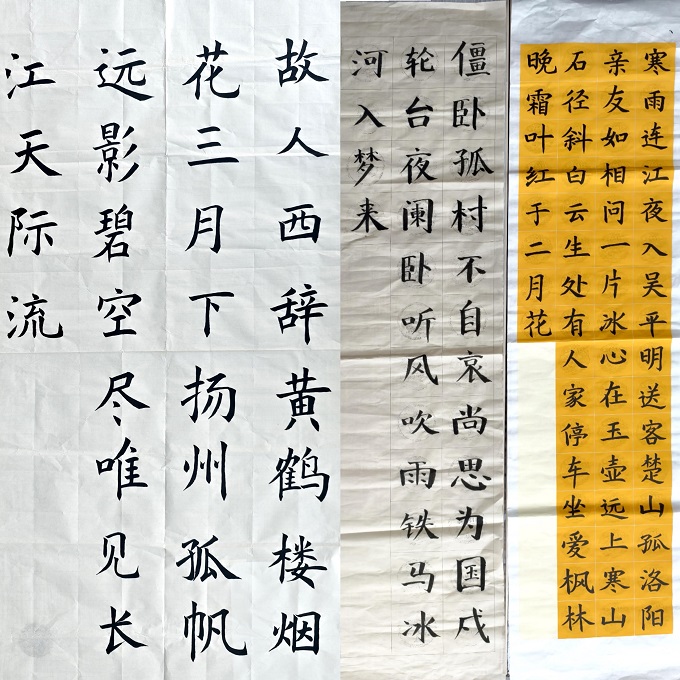 故人西辞黄鹤楼烟
花三月下扬州孤帆
远影碧空尽唯见长
江天际流
僵卧孤村不自哀尚思为国戍
轮台夜阑卧听风吹雨铁马冰
河入梦来
寒雨连江夜入吴平明送客楚山孤洛阳
亲友如相问一片冰心在玉壶远上寒山
石径斜白云生处有人家停车坐爱枫林
晚霜叶红于二月花